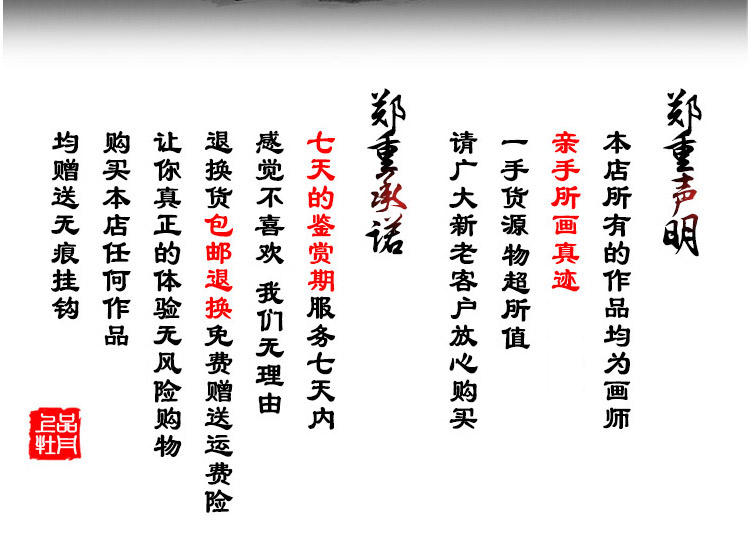 郑重声明
本店所有的作品均为画师
亲手所画真迹
一手货源物超所值
请广大新老客户放心购买
郑重承诺
七天的鉴赏期服务七天内
感觉不喜欢 我们无理由
退换货包邮退换免费赠送运费险
让你真正的体验无风险购物
购买本店任何作品
均赠送无痕挂钩